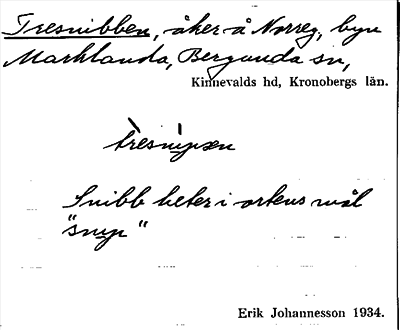 Tresnibben, åker å Norreg, byn
Marklanda, Bergunda sn,
Kinnevalds hd, Kronobergs län.
trèsnı̀pən
Snibb heter i ortens mål
"snıp"
Erik Johannesson 1934.